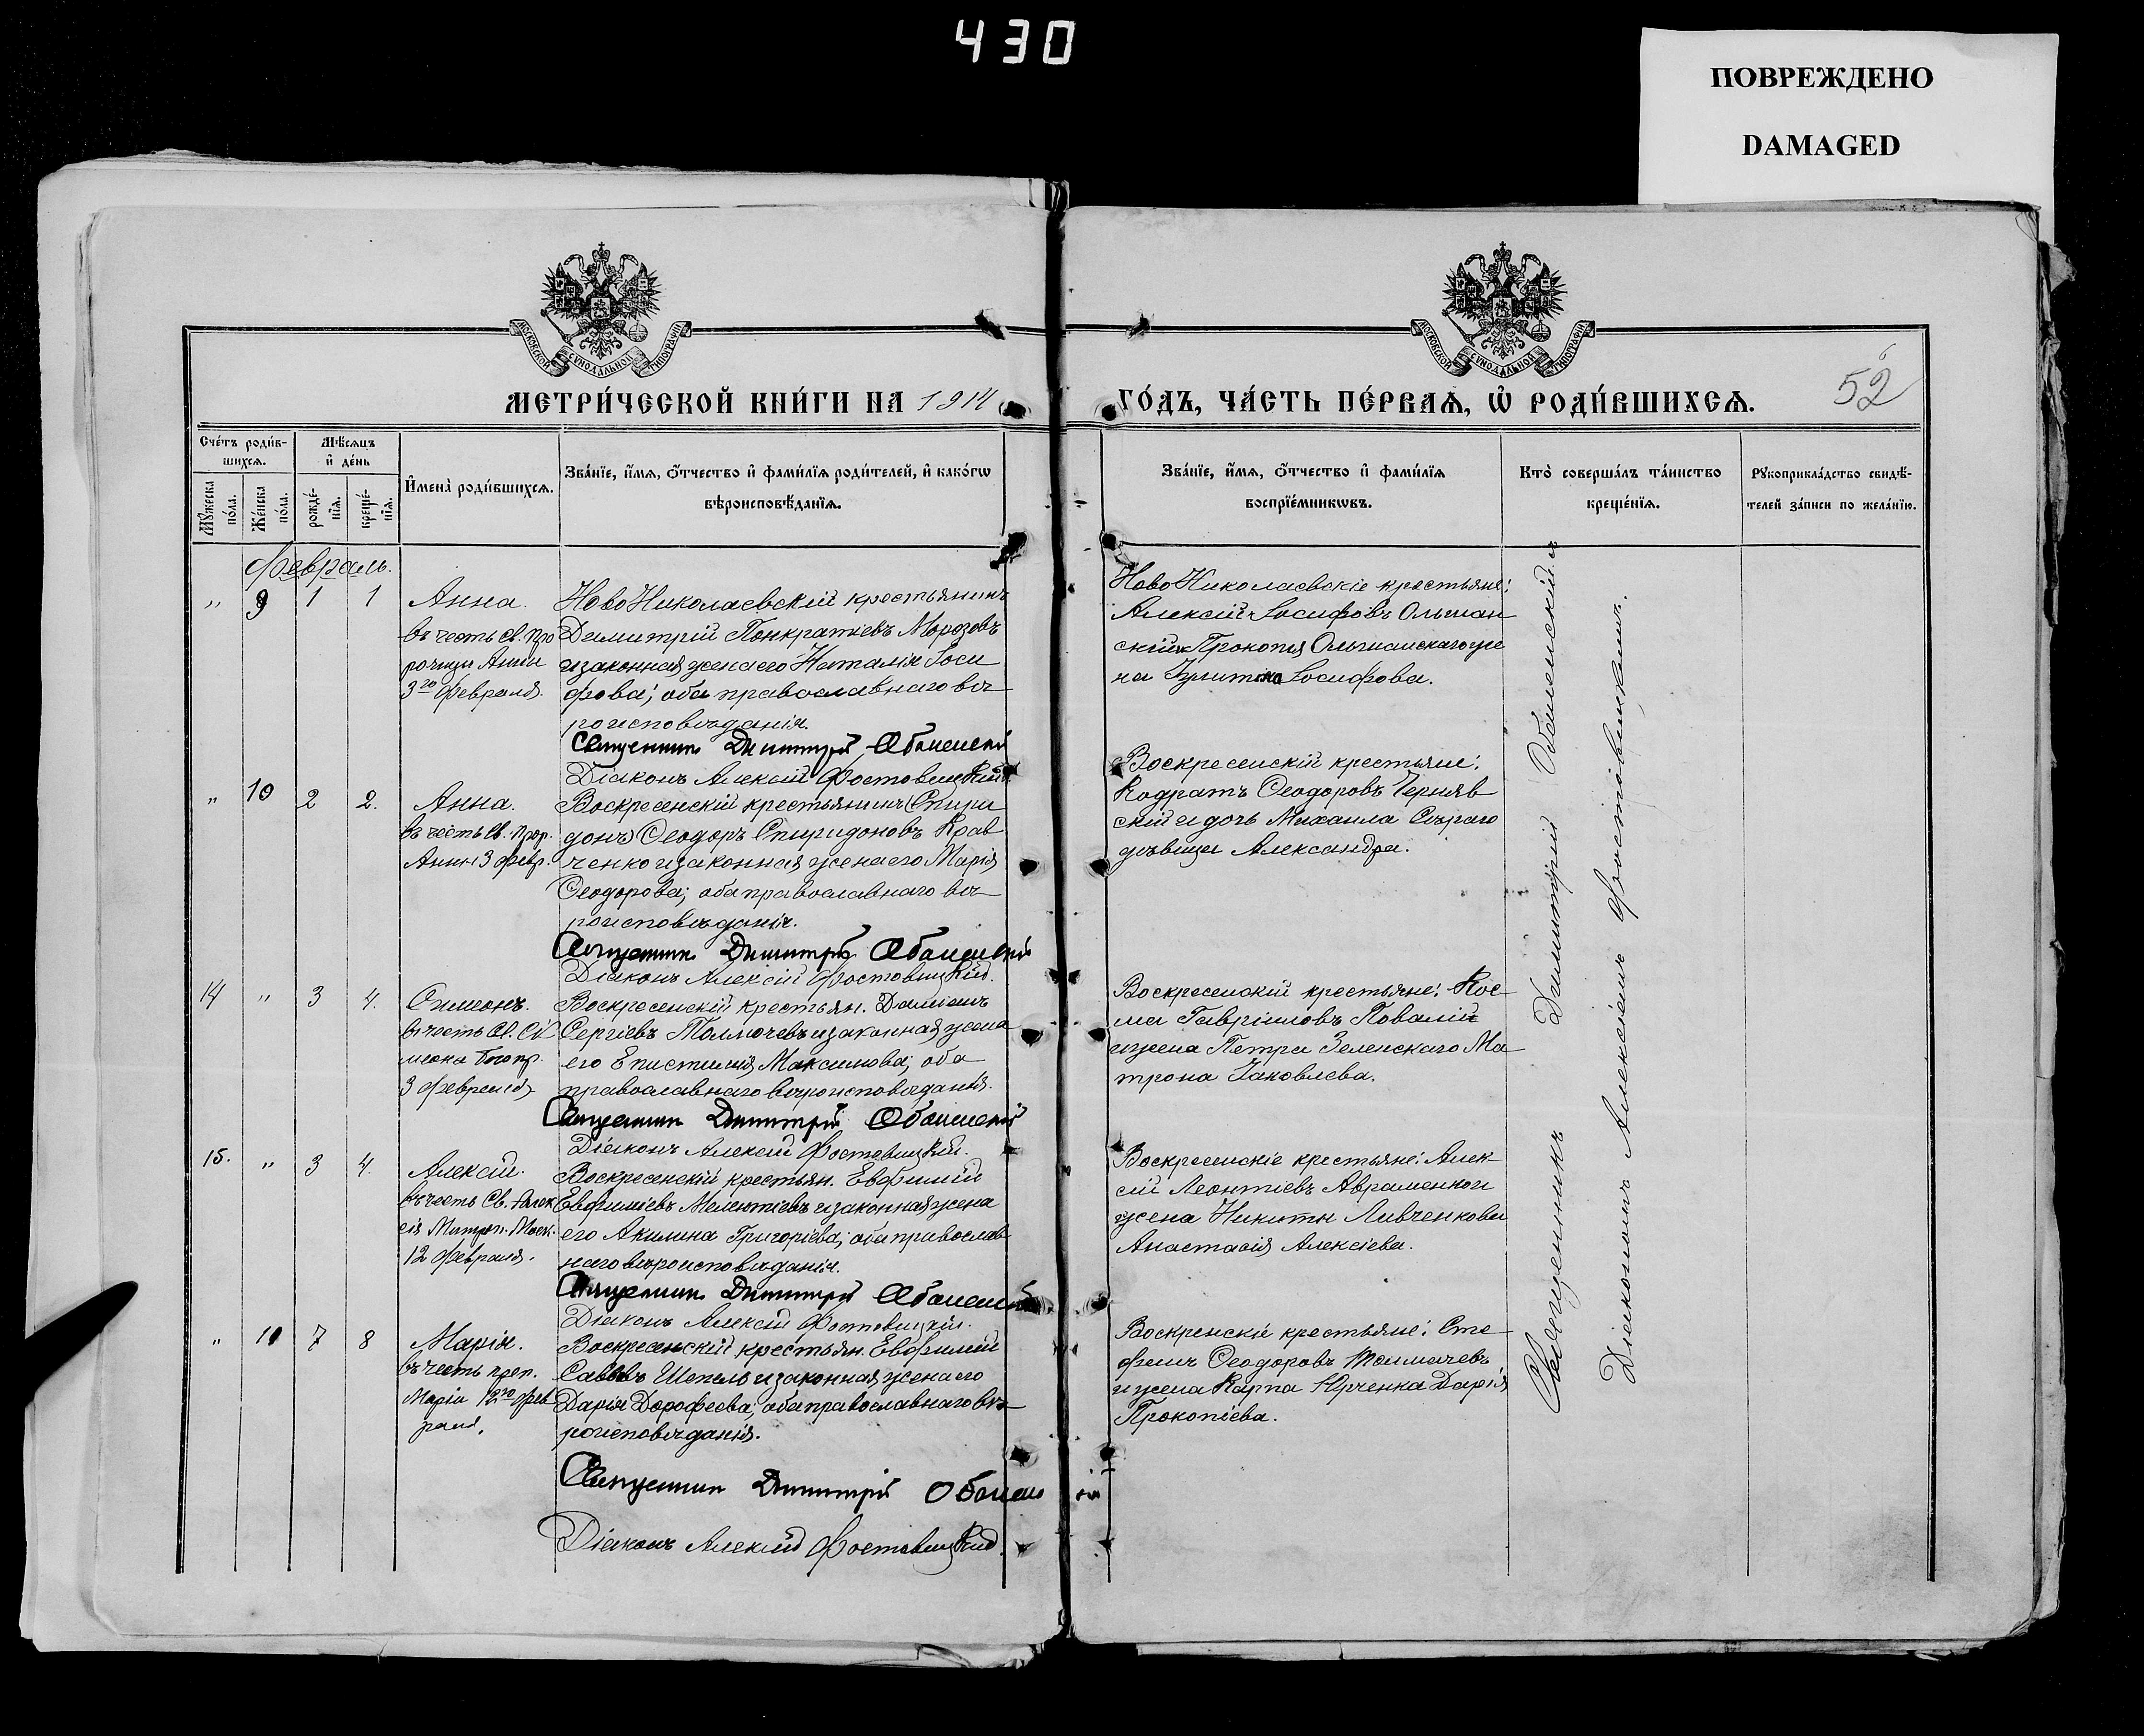 430
ПОВРЕЖДЕНО
DAMAGED
МОСКОВСКОЙ СѴНОДАЛЬНОЙ ТИПОГРАФІИ
МОСКОВСКОЙ СѴНОДАЛЬНОЙ ТИПОГРАФІИ
МЕТРИ́ЧЕСКОЙ КНИ́ГИ НА 1914
ГО́ДЪ, ЧА́СТЬ ПЕ́РВАѦ, Ѡ҆ РОДИ́ВШИХСѦ.
6
52
Сче́тъ роди́в-
шихсѧ.
Мѣ́сѧцъ
и҆ де́нь
Мꙋ́жеска
по́ла.
Же́нска
по́ла.
рожде́-
нїѧ.
креще́-
нїѧ.
И҆мена̀ роди́вшихсѧ.
Зва́нїе, и҆́мѧ, ѻ҆́тчество и҆ фами́лїѧ роди́телей, и҆ како́гѡ
вѣроисповѣ́данїѧ.
Зва́нїе, и҆́мѧ, ѻ҆́тчество и҆ фами́лїѧ
воспрїе́мникѡвъ.
Кто̀ соверша́лъ та́инство
креще́нїѧ.
Рꙋкоприкла́дство свидѣ́-
телей за́писи по жела́нїю.
Февраль.
" 9 1 1 Анна.
въ честь св. Про
рочицы Анны
3го февраля.
НовоНиколаевскій крестьянинъ
Димитрій Понкратіевъ Морозовъ
и законная жена его Наталія Іоси
фова; оба православнаго вѣ-
роисповѣданія.
Священникъ Димитрій Оболенскій
Діаконъ Алексій Фостовецкій
НовоНиколаевскіе крестьяне:
Алексій Іосифовъ Ольшан
скій и Прокопія Ольшанскаго же
на Іосифова.
" 10 2 2. Анна.
въ честь св. Прор.
Анны 3 февр.
Воскресенскій крестьянинъ (Спири
донъ) Ѳеодоръ Спиридоновъ Крав
ченко и законная жена его Марія
Ѳеодорова; оба православнаго вѣ-
роисповѣданія.
Священникъ Димитрій Оболенскій
Діаконъ Алексій Фостовецкій.
Воскресенскій крестьяне:
Кодратъ Ѳеодоровъ Черняв
скій и дочь Михаила Сѣраго
дѣвица Александра.
14 " 3 4. Симеонъ.
въ честь Св. Си
меона Богопр.
3 февраля
Воскресенскій крестьян. Даміанъ
Сергіевъ Толмачевъ и законная жена
его Епистимія Максимова; оба
православнаго вѣроисповѣданія.
Священникъ Димитрій Оболенскій
Діаконъ Алексій Фостовецкій.
Воскресенскій крестьяне: Кос-
ма Гавріиловъ Повалій
и жена Петра Зеленскаго Ма-
трона Іаковлева.
15. " 3 4. Алексій.
въ честь Св. Алек
сія Митроп. Моск.
12 февраля.
Воскресенскій крестьян. Евфимій
Евфиміевъ Мелентіевъ и законная жена
его Акилина Григоріева; оба православ
наго вѣроисповѣданія.
Священникъ Димитрій Оболенскій
Діаконъ Алексій Фостовецкій.
Воскресенскіе крестьяне: Алек-
сій Леонтіевъ Авраменко и
жена Никиты Ливченкова
Анастасія Алексіева.
" 11 7 8 Марія.
въ честь преп.
Маріи 12го фев
раля.
Воскресенскій крестьян. Евфимій
Саввовъ Шепель и законная жена его
Дарія Дорофеева; оба православнаго вѣ-
роисповѣданія.
Священникъ Димитрій Оболенскій
Діаконъ Алексій Фостовецкій.
Воскренскіе крестьяне: Сте-
фанъ Ѳеодоровъ Толмачевъ
и жена Карпа Юрченка Дарія
Прокопіева.
Священникъ Димитрій Оболенскій съ
Діакономъ Алексіемъ Фостовецкимъ.